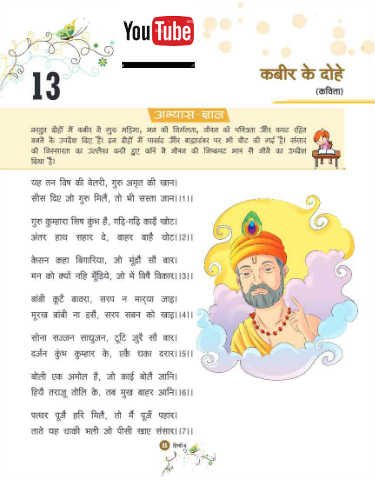 YouTube
13
कबीर के दोहे
(कविता)
अभ्यास ज्ञान
प्रस्तुत दोहों में कबीर ने गुरु महिमा, मन की निर्मलता, जीवन की पवित्रता और कपट रहित
बनने के उपदेश दिए हैं। इन दोहों में पाखंड और बाह्याडंबर पर भी चोट की गई है। संसार
की निस्सारता का उल्लेख करते हुए कवि ने जीवन को निष्कपट भाव से जीने का उपदेश
दिया है।
यह तन विष की बेलरी, गुरु अमृत की खान।
सीस दिए जो गुरु मिलैं, तो भी सस्ता जान।।1।।
गुरु कुम्हारा सिष कुंभ है, गढ़ि-गढ़ि काढ़ैं खोट।
अंतर हाथ सहार दे, बाहर बाहै चोट।।2।।
केसन कहा बिगारिया, जो मूंडौ सौ बार।
मन को क्यों नहि मूँडिये, जो में विषै विकार।।3।।
बांबी कूटैं बावरा, सरप न मार्‌या जाइ।
मूरख बांबी ना डसैं, सरप सबन को खाइ।।4।।
सोना सज्जन साधुजन, टूटि जुरैं सौ बार।
दुर्जन कुंभ कुम्हार के, एकै धका दरार।।5।।
बोली एक अमोल है, जो कोई बोलैं जानि।
हियै तराजू तोलि के, तब मुख बाहर आनि।।6।।
पत्थर पूजैं हरि मिलै, तो मैं पूजूँ पहार।
ताते यह चाकी भली जो पीसी खाए संसार।।7।।